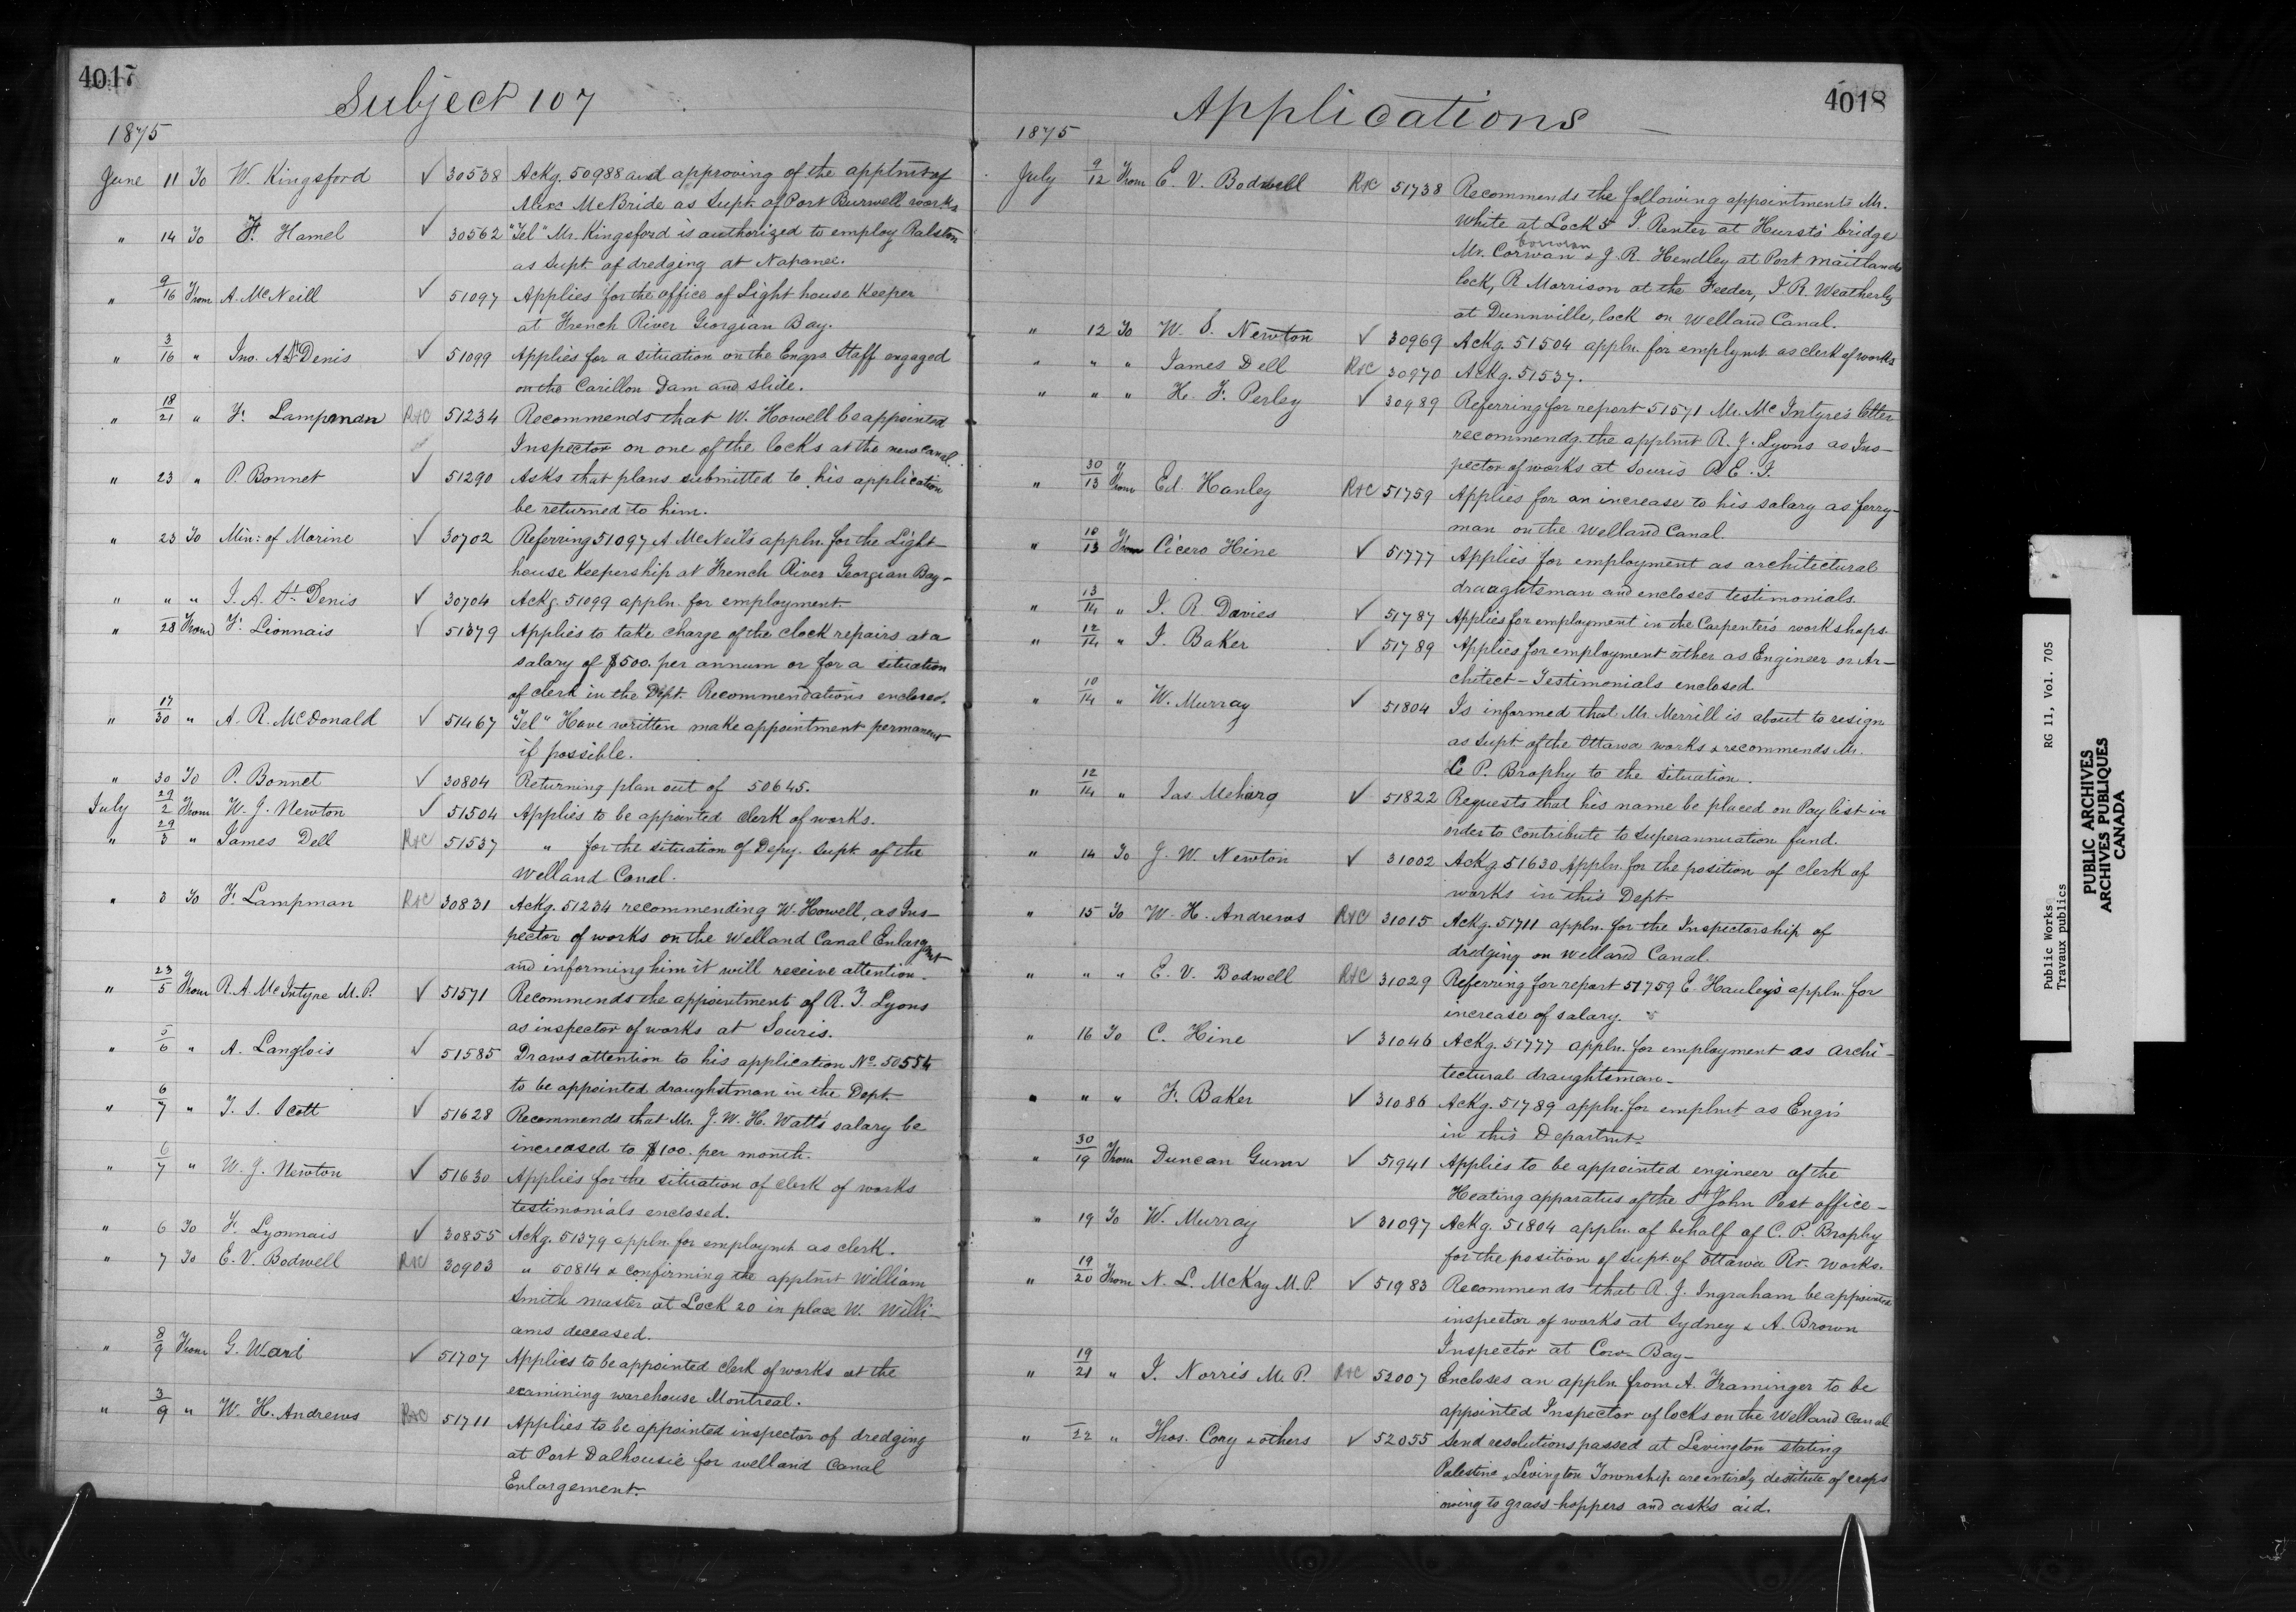 4017
Subject 107
1875
June 11 To W. Kingsford ✓ 30538 Ackg. 50988 and approving of the apptmt of
Alexr McBride as Supt. of Port Burwell works
" 14 To F. Hamel ✓ 30562 "Tel" Mr. Kingsford is authorized to employ Ralston
as Supt. of dredging at Napanee.
" 9/16 From A. McNeill ✓ 51097 Applies for the office of Light house Keeper
at French River Georgian Bay.
" 3/16 " Jno. A St Denis ✓ 51099 Applies for a situation on the Engrs Staff engaged
on the Carillon Dam and slide.
" 18/21 " F. Lampman R&C 51234 Recommends that W. Howell be appointed
Inspector on one of the locks at the new Canal.
" 23 " P. Bonnet ✓ 51290 Asks that plans submitted to his application
be returned to him.
" 23 To Min: of Marine ✓ 30702 Referring 51097 A McNeil's appln. for the Light
house Keepership at French River Georgian Bay-
" " " J. A. St Denis ✓ 30704 Ackg. 51099 appln. for employment
" 28 From F. Lionnais ✓ 51379 Applies to take charge of the clock repairs at a
salary of $500. per annum or for a situation
of clerk in the Dept. Recommendations enclosed.
" 17/30 " A. R. McDonald ✓ 51467 "Tel" Have written make appointment permanent
if possible.
" 30 To P. Bonnet ✓ 30804 Returning plan out of 50645.
July 29/2 From W. J. Newton ✓ 51504 Applies to be appointed clerk of works.
" 29/3 " James Dell R&C 51537 " for the situation of Depy. Supt. of the
Welland Canal.
" 3 To F. Lampman R&C 30831 Ackg. 51234 recommending W. Howell, as Ins-
pector of works on the Welland Canal Enlargmt
and informing him it will receive attention.
" 23/5 From R. A. McIntyre M.P. ✓ 51571 Recommends the appointment of R. J. Lyons
as inspector of works at Souris.
" 5/6 " A. Langlois ✓ 51585 Draws attention to his application No. 50554
to be appointed draughtsman in the Dept.
" 6/7 " T. S. Scott ✓ 51628 Recommends that Mr. J. W. H. Watts salary be
increased to $100. per month.
" 6/7 " W. J. Newton ✓ 51630 Applies for the situation of clerk of works
testimonials enclosed.
" 6 To F. Lyonnais ✓ 30855 Ackg. 51379 appln. for employmt. as clerk.
" 7 To E. V. Bodwell R&C 30903 " 50814 & confirming the apptmt William
Smith master at Lock 20 in place W. Willi-
ams deceased.
" 8/9 From G. Ward ✓ 51707 Applies to be appointed clerk of works at the
examining warehouse Montreal.
" 3/9 " W. H. Andrews R&C 51711 Applies to be appointed inspector of dredging
at Port Dalhousie for Welland Canal
Enlargement.
4018
Applications
1875
July 9/12 From E. V. Bodwell R&C 51738 Recommends the following appointments Mr.
White at Lock 5 J. Renter at Hursts bridge
Corwan
Mr. Corwan & J. R. Hendley at Port Maitland
lock, R Morrison at the Feeder, J. R. Weatherly
at Dunnville, lock on Welland Canal.
" 12 To W. J. Newton ✓ 30969 Ackg. 51504 appln. for emplymt. as clerk of works
" " " James Dell R&C 30970 Ackg. 51537.
" " " H. F. Perley ✓ 30989 Referring for report 51571 Mr. McIntyre's letter
recommendg. the apptmt R. J. Lyons as Ins-
pector of works at Souris P. E. I.
" 30/13 From Ed. Hanley R&C 51759 Applies for an increase to his salary as ferry-
man on the Welland Canal.
" 10/13 From Cicero Hine ✓ 51777 Applies for employment as architectural
draughtsman and encloses testimonials.
" 13/14 " J. R. Davies ✓ 51787 Applies for employment in the Carpenter's workshops.
" 12/14 " J. Baker ✓ 51789 Applies for employment either as Engineer or Ar-
chitect - Testimonials enclosed
" 10/14 " W. Murray ✓ 51804 Is informed that Mr. Merrill is about to resign
as Supt. of the Ottawa works & recommends Mr.
C P. Brophy to the situation.
" 12/14 " Jas Meharg ✓ 51822 Requests that his name be placed on Pay list in
order to contribute to Superannuation fund.
" 14 To J. W. Newton ✓ 31002 Ackg. 51630 Appln. for the position of clerk of
works in this Dept.
" 15 To W. H. Andrews R&C 31015 Ackg. 51711 appln. for the Inspectorship of
dredging on Welland Canal.
" " " E. V. Bodwell R&C 31029 Referring for report 51759 E. Hanley's appln. for
increase of salary.
" 16 To C. Hine ✓ 31046 Ackg. 51777 appln. for employment as archi-
tectural draughtsman-
" " " F. Baker ✓ 31086 Ackg. 51789 appln. for emplmt as Engr.
in this Departmt.
" 30/19 From Duncan Gunn ✓ 51941 Applies to be appointed engineer of the
Heating apparatus of the St John Post office-
" 19 To W. Murray ✓ 31097 Ackg. 51804 appln. of behalf of C. P. Brophy
for the position of Supt. of Ottawa Rr. Works.
" 19/20 From N. L. McKay M.P. ✓ 51983 Recommends that R. J. Ingraham be appointed
inspector of works at Sydney & A. Brown
Inspector at Cow Bay-
" 19/21 " J. Norris M. P. R&C 52007 Encloses an appln. from A. Framinger to be
appointed Inspector of locks on the Welland Canal
" /22 " Thos. Cory & others ✓ 52055 Send resolutions passed at Levington stating
Palestine & Levington Township are entirely destitute of crops
owing to grass-hoppers and asks aid.
Public Works RG 11, Vol. 705
Travaux publics
PUBLIC ARCHIVES
ARCHIVES PUBLIQUES
CANADA